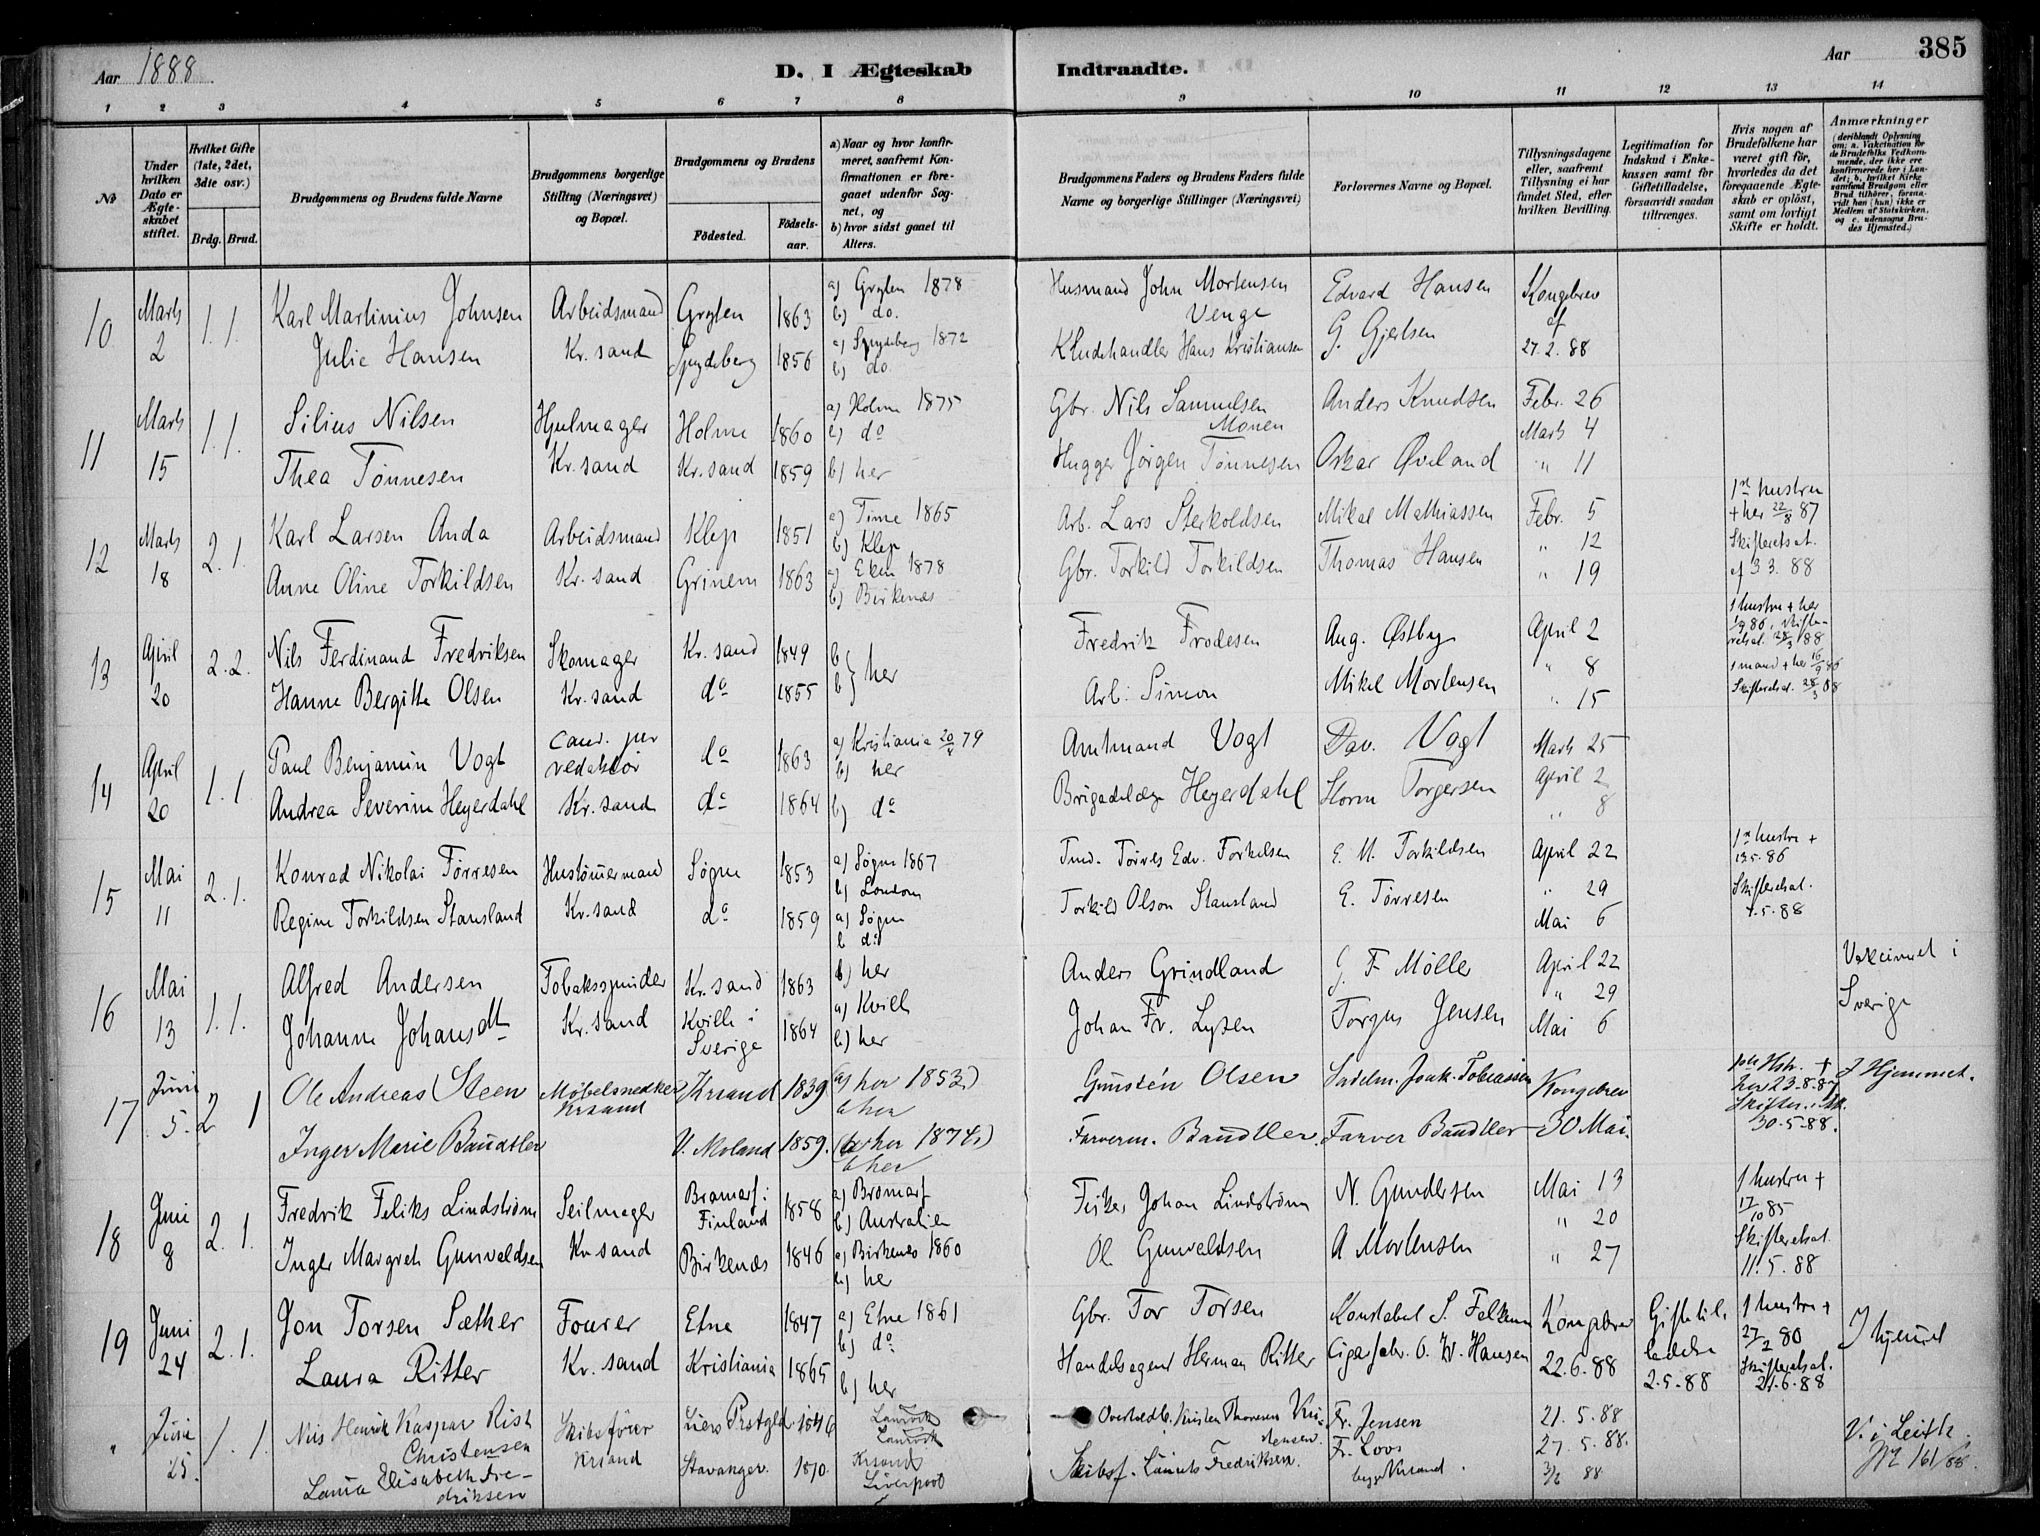 Aar 1888
D. I Ægteskab Indtraadte.
Aar 385
1 2 3 4 5 6 7 8 9 10 11 12 13 14
№
Under hvilken Dato er Ægteskabet stiftet.
Hvilket Gifte (1ste, 2det, 3die osv.)
Brdg. Brud.
Brudgommens og Brudens fulde Navne
Brudgommens borgerlige Stilling (Næringsvei) og Bopæl.
Brudgommens og Brudens
Fødested.
Fødselsaar.
a) Naar og hvor konfirmeret, saafremt Konfirmationen er foregaaet udenfor Sognet, og
b) hvor sidst gaaet til Alters.
Brudgommens Faders og Brudens Faders fulde Navne og borgerlige Stillinger (Næringsvei)
Forlovernes Navne og Bopæl.
Tillysningsdagene eller, saafremt Tillysning ei har fundet Sted, efter hvilken Bevilling.
Legitimation for Indskud i Enkekassen samt for Giftetilladelse, forsaavidt saadan tiltrænges.
Hvis nogen af Brudefolkene har været gift før, hvorledes da det foregaaende Ægteskab er opløst, samt om lovligt Skifte er holdt.
Anmærkninger (deriblandt Oplysning om; a. Vakcination for de Brudefolks Vedkommende, der ikke ere konfirmerede her i Landet; b. hvilket Kirkesamfund Brudgom eller Brud tilhører, forsaavidt han (hun) ikke er Medlem af Statskirken, og c. udensogns Brudes Hjemsted.)
10 Marts 2 1. 1.
Karl Martinius Johnsen Arbeidsmand Gryten 1863 a) Gryten 1878 b) do. Husmand John Mortensen Venge Edvard Hansen Kongebrev af
Julie Hansen Kr. sand Spydeberg 1856 a) Spydeberg 1872 b) do. Kludehandler Hans Kristiansen G. Gjelsen 27. 2. 88
11 Marts 15 1. 1.
Silius Nilsen Hjulmager Holme 1860 a) Holme 1875 b) do Gbr. Nils Samuelsen Monen Anders Knudsen Febr. 26 Marts 4
Thea Tønnesen Kr. sand Kr. sand 1859 b) her Hugger Jørgen Tønnesen Oskar Øveland " 11
12 Marts 18 2. 1.
Karl Larsen Anda Arbeidsmand Klep 1851 a) Time 1865 b) Klep Arb. Lars Sterkoldsen Mikal Mathiassen Febr. 5 " 12 1ste hustru + her 22/8 87
Anne Oline Torkildsen Kr. sand Grinem 1863 a) Eken 1878 b) Birkenes Gbr. Torkild Torkildsen Thomas Hansen " 19 Skifteretsat. af 3 3. 88
13 April 20 2. 2.
Nils Ferdinand Fredriksen Skomager Kr. sand 1849 b) her Fredrik Frodesen Aug. Østbye April 2 " 8 1 hustru + her
Hanne Bergitte Olsen Kr. sand do 1855 b) Arb. Simon Mikel Mortensen " 15 1 mand + her 16/9 86 Skifteretsat. 28/3 88
14 April 20 1. 1.
Paul Benjamin Vogt cand. jur redaktør do 1863 a) Kristiania 20/4 79 b) her Amtmand Vogt Dav. Vogt Marts 25 April 2
Andrea Severine Heyerdahl Kr. sand do 1864 b) do Brigadelæge Heyerdahl Storm Torgersen " 8
15 Mai 11 2. 1.
Konrad Nikolai Tørresen Hustømermand Søgne 1853 a) Søgne 1867 b) London Tørres Edv. Torkelsen E. M. Torkildsen April 22 " 29 1ste hustru + 13.5.86
Regine Torkildsen Stausland Kr. sand do 1859 a) Søgne b do Torkild Olson Stausland E. Tørresen Mai 6 Skifteretsat. 4.5.88
16 Mai 13 1. 1.
Alfred Andersen Tobaksspinder Kr. sand 1863 b) her Anders Grindland J. F. Møller April 22 " 29 Vakcineret i
Johanne Johansdt Kr. sand Kville i Sverige 1864 a) Kville b) her Johan Fr. Torgus Jensen Mai 6 Sverige
17 Juni 5. 2 1
Ole Andreas Steen Møbelsnedker Krsand V. Krsand 1839 (a) her 1853.) b her Gunsten Olsen Joak. Tobiassen Kongebrev her 23-8-87 I Hjemmet.
Inger Marie Baudtler V. Moland 1859. (a) her 1874.) b her Farverm. Baudtler. Farver Baudtler 30 Mai. 30-5-88.
18 Juni 8 2. 1.
Fredrik Feliks Lindstrøm Seilmager Bromarf i Finland 1858 a) Bromarf b) Australien Fisker Johan Lindstrøm N. Gundersen Mai 13 " 20 1 hustru + 17/10 85
Inger Margrete Gunvaldsen Kr. sand Birkenæs 1846 a) Birkenes 1860 b) her Ol Gunvaldsen A Mortensen " 27 Skifteretsat. 11. 5. 88
19 Juni 24 2. 1.
Jon Torsen Sæther Fourer Etne 1847 a) Etne 1861 b) do Gbr. Tor Torsen Konstabel S. Kongebrev Giftetil- 1 hustru + 27/2 80 I hjemmet
Laura Ritter Kr. sand Kristiania 1865 b) her Handelsagent Herman Ritter Cigarfabr. O. Kr. Hansen 22.6.88 ladelse 2.5.88 Skifteretsat. 21.6.88
" Juni 25. 1. 1.
Nils Henrik Kaspar Rist Christensen Skibsfører Krsand Liers Prstgld. 1846 Laurvik Laurvik Kristen Thoresen Kristensen. Fr. Jensen 21. 5. 88 27. 5. 88. V. i Leith.
Laura Elisabeth Fredriksen Stavanger. 1870. Krsand Liverpool Skibsf. Laurits Fredriksen. Fr. Loos begge Krsand. 3/6 88 № 161/88.